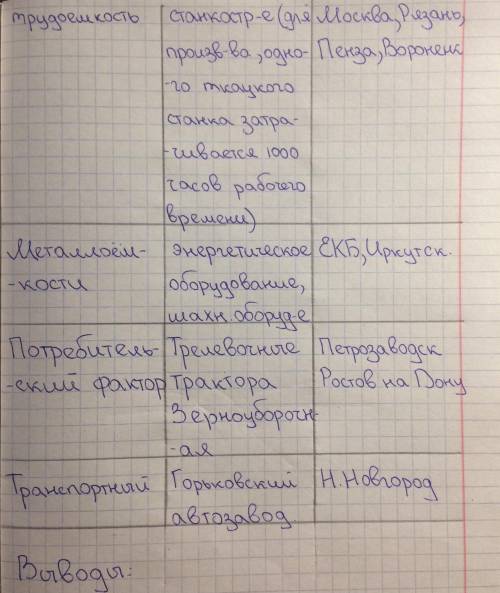 трудоемкость станкостр-е (для Москва, Рязань,
произв-ва, одно- Пенза, Воронеж
-го ткацкого
станка затра-
-чивается 1000
часов рабочего
времени)
Металлоём- энергетическое ЕКБ, Иркутск.
-кости оборудование,
шахн. оборуд-е
Потребитель- Трелевочные Петрозаводск
-ский фактор Трактора Ростов на Дону
Зерноуборочн-
-ая
Транспортный Горьковский Н.Новгород
автозавод.
Выводы: